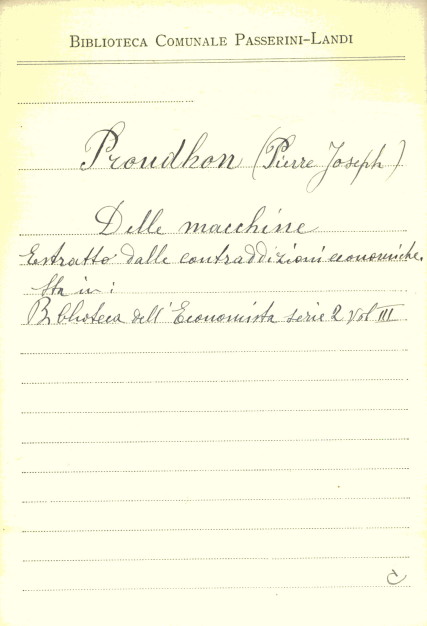 BIBLIOTECA COMUNALE PASSERINI-LANDI
Proudhon (Pierre Joseph)
Delle macchine
Estratto dalle contraddizioni economiche.
Sta in:
Biblioteca dell'Economista serie 2 Vol III
C